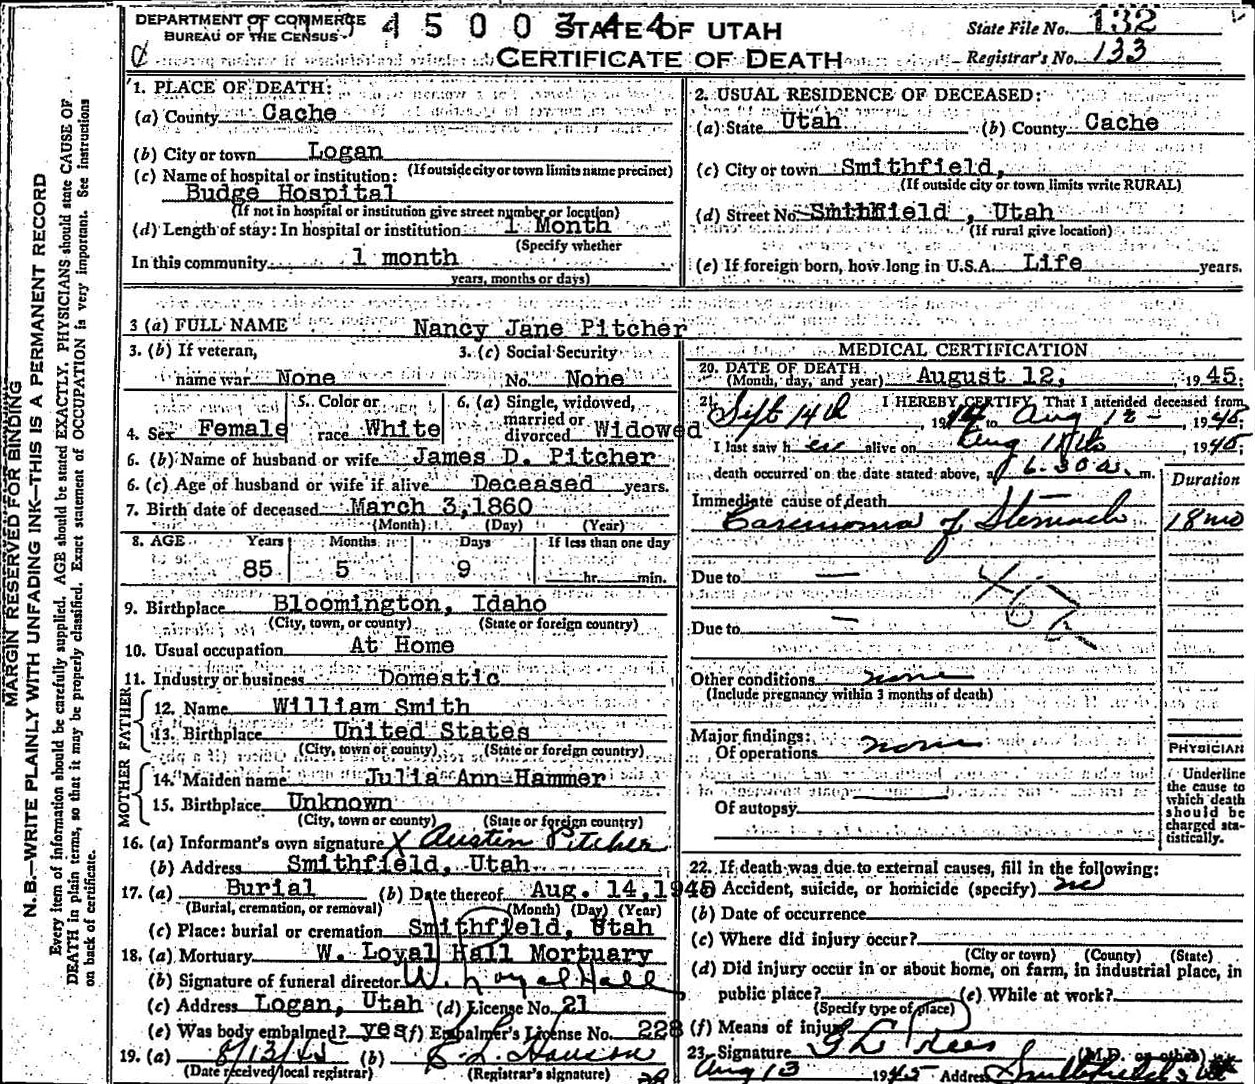 DEPARTMENT OF COMMERCE
BUREAU OF THE CENSUS
4 5 0 0 3 4 4
STATE OF UTAH
CERTIFICATE OF DEATH
State File No. 132
Registrar's No. 133
MARGIN RESERVED FOR BINDING
N. B.—WRITE PLAINLY WITH UNFADING INK—THIS IS A PERMANENT RECORD
Every item of information should be carefully supplied. AGE should be stated EXACTLY. PHYSICIANS should state CAUSE OF
DEATH in plain terms, so that it may be properly classified. Exact statement of OCCUPATION is very important. See instructions
on back of certificate.
1. PLACE OF DEATH:
(a) County Cache
(b) City or town Logan
(If outside city or town limits name precinct)
(c) Name of hospital or institution:
Budge Hospital
(If not in hospital or institution give street number or location)
(d) Length of stay: In hospital or institution 1 Month
(Specify whether
In this community 1 month
years, months or days)
2. USUAL RESIDENCE OF DECEASED:
(a) State Utah (b) County Cache
(c) City or town Smithfield,
(If outside city or town limits write RURAL)
(d) Street No. Smithfield , Utah
(If rural give location)
(e) If foreign born, how long in U.S.A. Life years.
3 (a) FULL NAME Nancy Jane Pitcher
3. (b) If veteran, 3. (c) Social Security
name war None No. None
4. Sex Female
5. Color or
race White
6. (a) Single, widowed,
married or
divorced Widowed
6. (b) Name of husband or wife James D. Pitcher
6. (c) Age of husband or wife if alive Deceased years.
7. Birth date of deceased March 3, 1860
(Month) (Day) (Year)
8. AGE Years Months Days If less than one day
85 5 9 hr. min.
9. Birthplace Bloomington, Idaho
(City, town, or county) (State or foreign country)
10. Usual occupation At Home
11. Industry or business Domestic
FATHER
12. Name William Smith
13. Birthplace United States
(City, town or county) (State or foreign country)
MOTHER
14. Maiden name Julia Ann Hammer
15. Birthplace Unknown
(City, town or county) (State or foreign country)
16. (a) Informant's own signature X Austin Pitcher
(b) Address Smithfield, Utah
17. (a) Burial (b) Date thereof Aug. 14, 1945
(Burial, cremation, or removal) (Month) (Day) (Year)
(c) Place: burial or cremation Smithfield, Utah
18. (a) Mortuary W. Loyal Hall Mortuary
(b) Signature of funeral director W. Loyal Hall
(c) Address Logan, Utah (d) License No. 21
(e) Was body embalmed? yes (f) Embalmer's License No. 228
19. (a) 8/13/45 (b)
(Date received local registrar) (Registrar's signature)
MEDICAL CERTIFICATION
20. DATE OF DEATH
(Month, day, and year) August 12, , 1945;
21. I HEREBY CERTIFY, That I attended deceased from
Sept 14th , 1944 to Aug 12 - , 1945;
I last saw her alive on Aug 11th , 1945;
death occurred on the date stated above, at 6:30 a. m.
Duration
Immediate cause of death
Carcinoma of Stomach 18 mo
Due to —
Due to —
Other conditions none
(Include pregnancy within 3 months of death)
Major findings:
Of operations none
Of autopsy
PHYSICIAN
Underline
the cause to
which death
should be
charged sta-
tistically.
22. If death was due to external causes, fill in the following:
(a) Accident, suicide, or homicide (specify) no
(b) Date of occurrence
(c) Where did injury occur?
(City or town) (County) (State)
(d) Did injury occur in or about home, on farm, in industrial place, in
public place? (e) While at work?
(Specify type of place)
(f) Means of injury
23. Signature G L Rees (M.D. or other)
Aug 13 1945 Address Smithfield